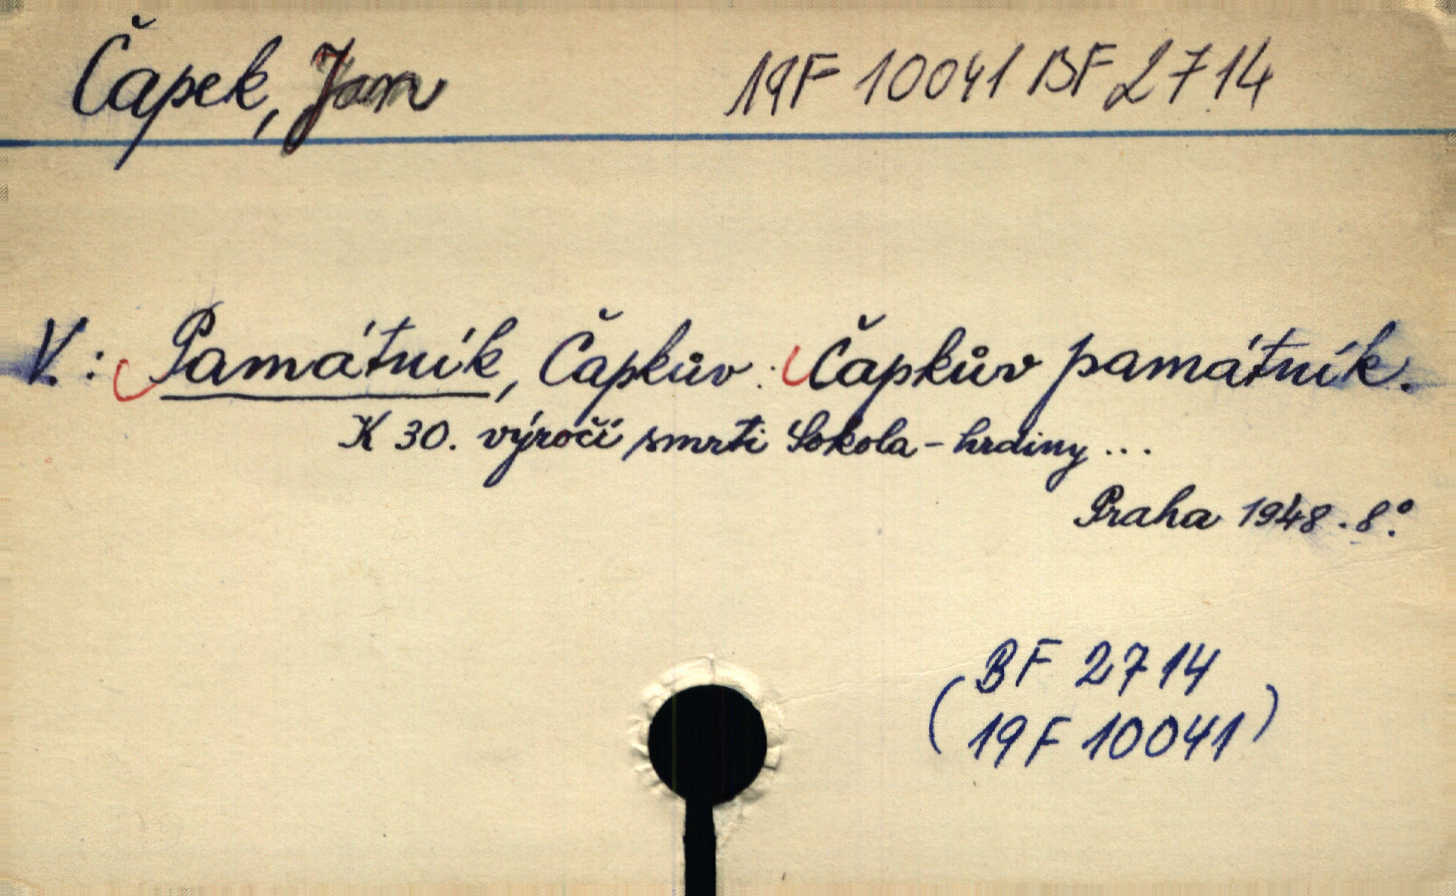 Čapek, Jan 19F 10041 BF 2714
V.: Památník, Čapkův. Čapkův památník.
K 30. výročí smrti Sokola-hrdiny ...
Praha 1948. 8°.
BF 2714
(19F 10041)